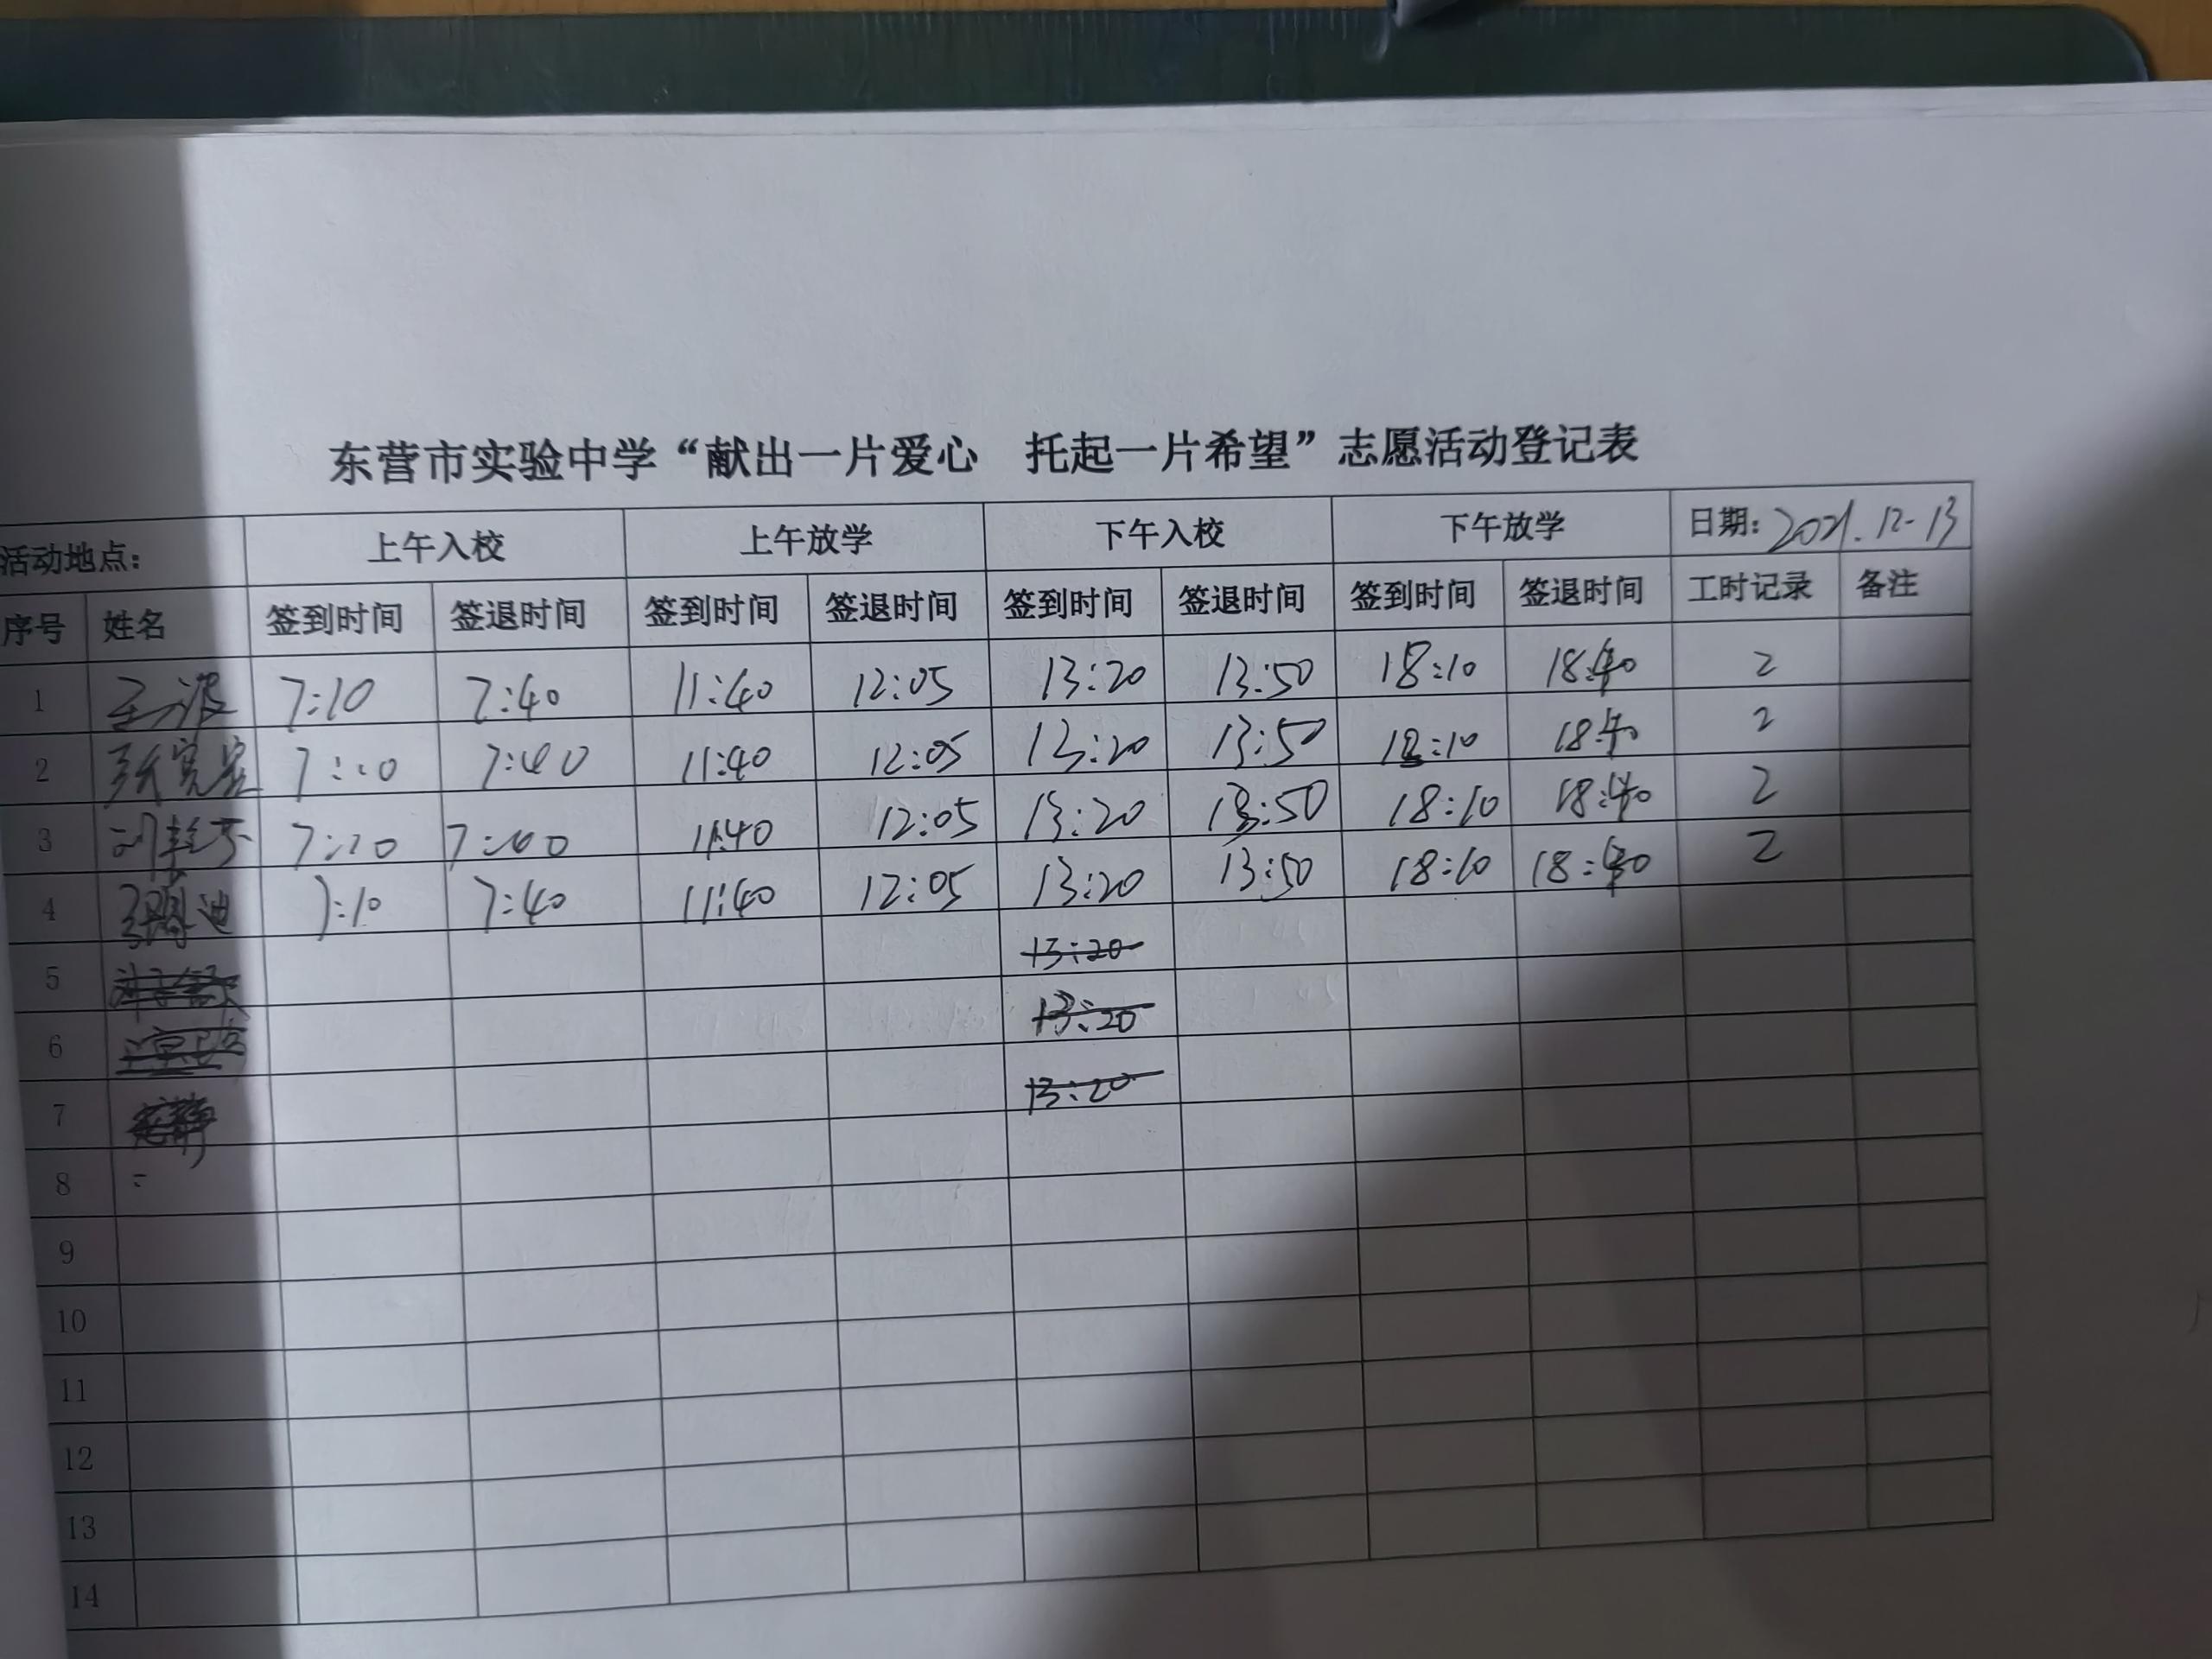 东营市实验中学“献出一片爱心 托起一片希望”志愿活动登记表
活动地点： 上午入校 上午放学 下午入校 下午放学 日期：2021.12-13
序号 姓名 签到时间 签退时间 签到时间 签退时间 签到时间 签退时间 签到时间 签退时间 工时记录 备注
1 7:10 7:40 11:40 12:05 13:20 13:50 18:10 18:40 2
2 7:10 7:40 11:40 12:05 13:20 13:50 18:10 18:40 2
3 7:10 7:40 11:40 12:05 13:20 13:50 18:10 18:40 2
4 7:10 7:40 11:40 12:05 13:20 13:50 18:10 18:40 2
5 13:20
6 13:20
7 13:20
8
9
10
11
12
13
14